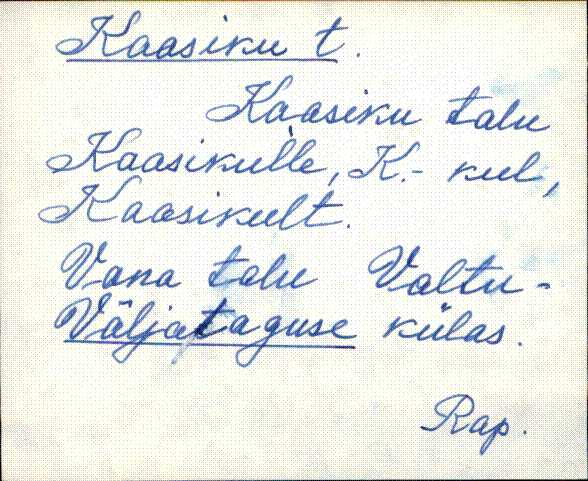 Kaasiku t.
Kaasiku talu
Kaasikulle, K.- kul,
Kaasikult.
Vana talu Valtu-
Väljataguse külas.
Rap.